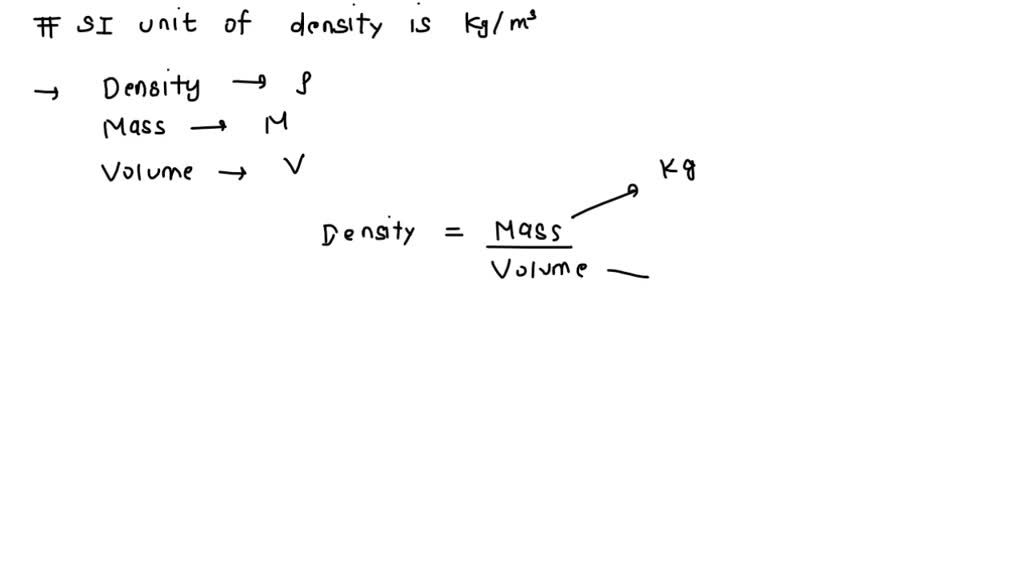 # SI unit of density is kg/m³
→ Density → ρ
Mass → M
Volume → V
Kg
Density = Mass
Volume